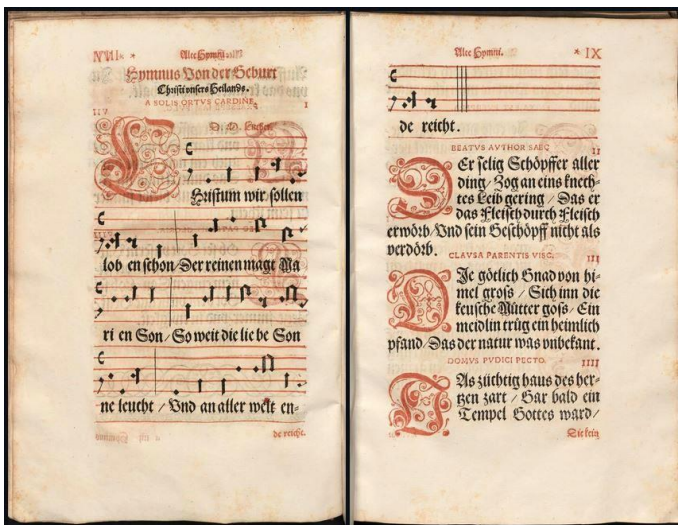 VIII
Alte Hymni.
Hymnus Von der Geburt
Christi vnsers Heilands.
A SOLIS ORTVS CARDINE,
I
D. M. Luther.
CHristum wir sollen
lob en schon / Der reinen magt Ma
ri en Son / So weit die lie be Son
ne leucht / Vnd an aller welt en-
de reicht.
Alte Hymni.
* IX
de reicht.
BEATVS AVTHOR SAEC
II
DEr selig Schöpffer aller
ding / Zog an eins knech-
tes Leib gering / Das er
das Fleisch durch Fleisch
erwörb / Vnd sein Geschöpff nicht als
verdörb.
CLAVSA PARENTIS VISC.
III
DIe götlich Gnad von hi-
mel gross / Sich inn die
keusche Mütter goss / Ein
meidlin trüg ein heimlich
pfand / Das der natur was vnbekant.
DOMVS PVDICI PECTO.
IIII
DAs züchtig haus des her-
tzen zart / Gar bald ein
Tempel Gottes ward /
Die kein